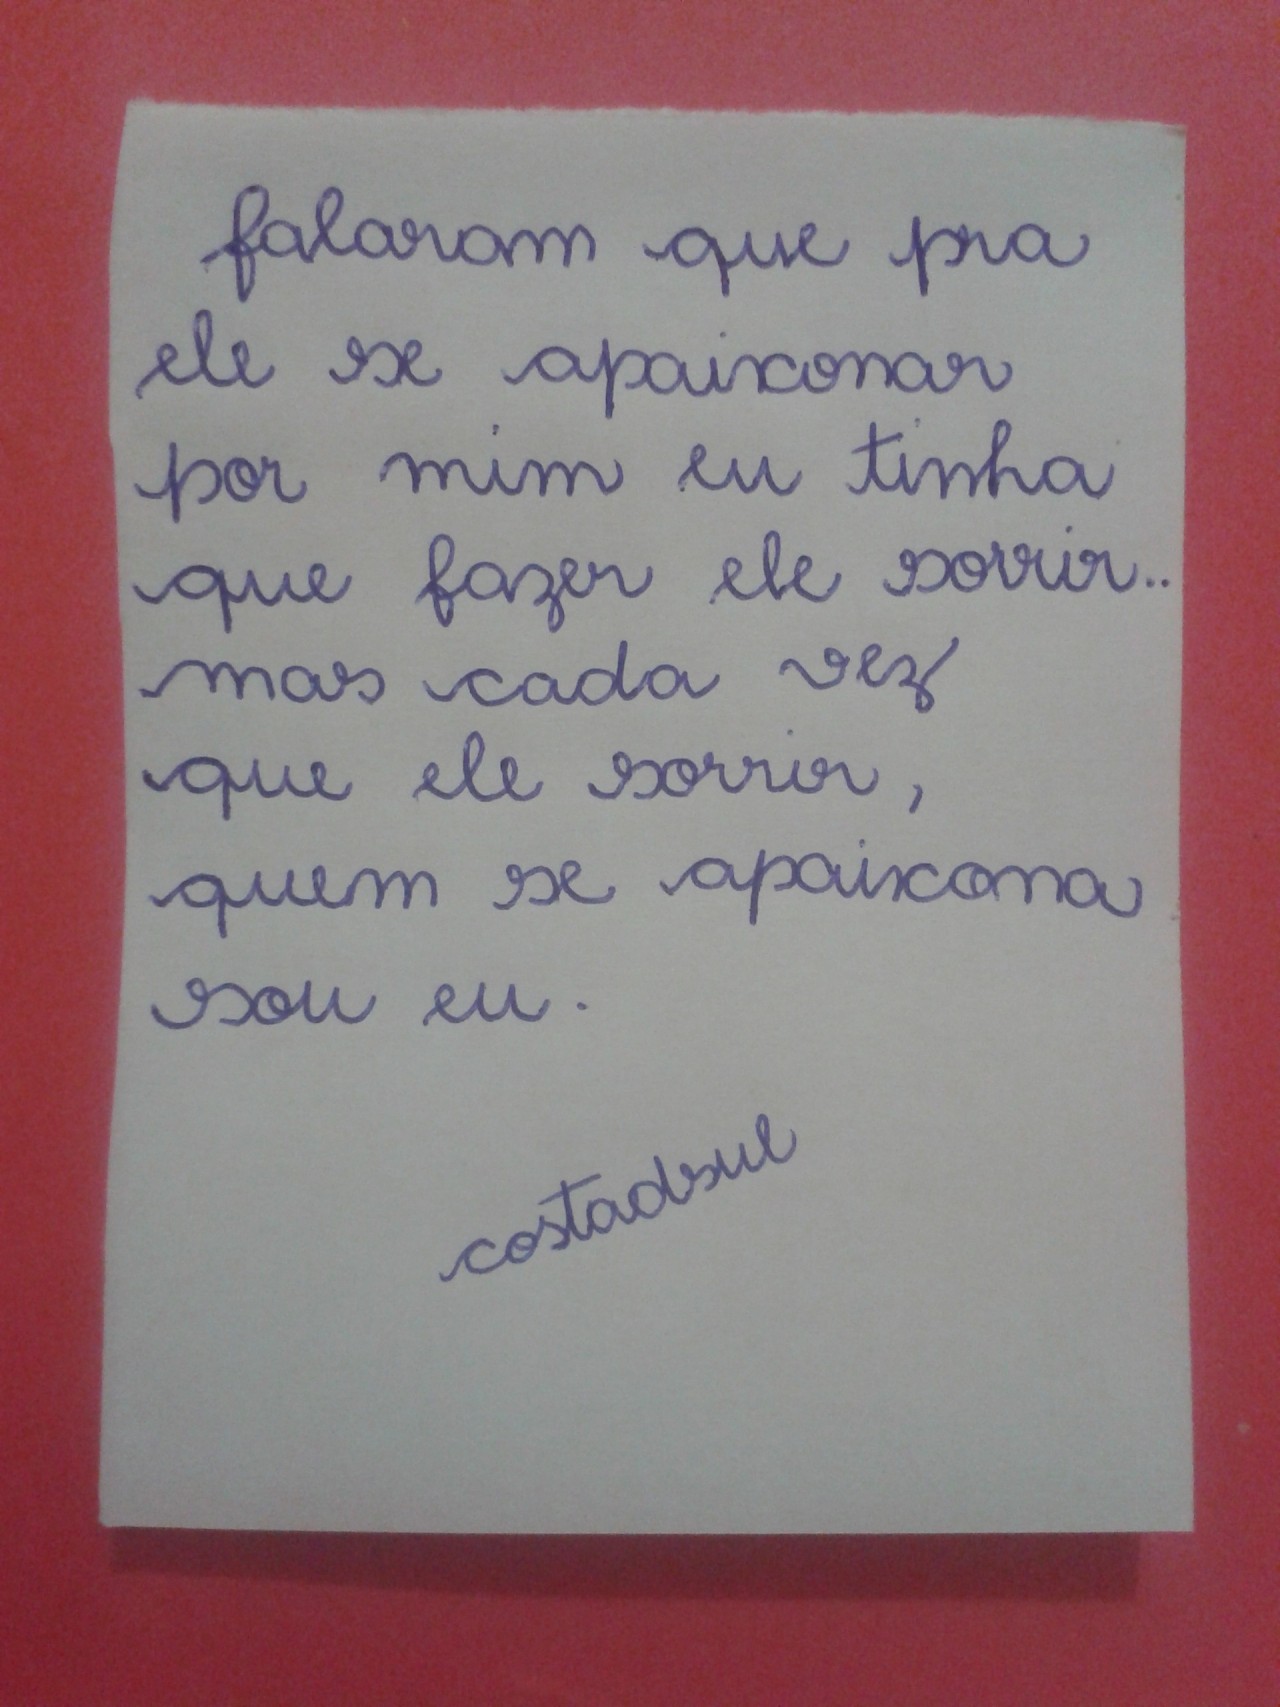 falaram que pra
ele se apaixonar
por mim eu tinha
que fazer ele sorrir..
mas cada vez
que ele sorrir,
quem se apaixona
sou eu.
costadsul